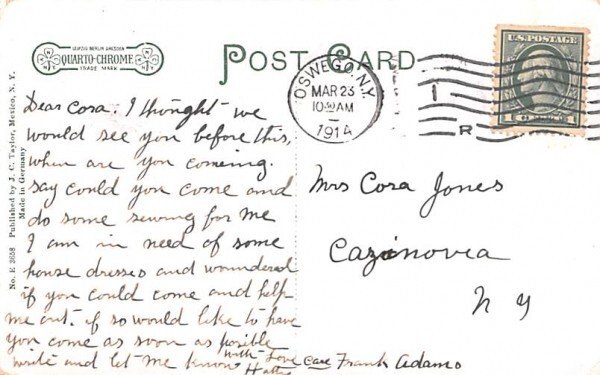 LEIPZIG BERLIN DRESDEN
QUARTO-CHROME
TRADE MARK
POST CARD
OSWEGO, N.Y.
MAR 23
10-30AM
1914
1
R
U.S. POSTAGE
No. E 3658 Published by J. C. Taylor, Mexico, N. Y.
Made in Germany
Dear Cora. I thought we
would see you before this,
when are you comeing.
say could you come and
do some sewing for me
I am in need of some
house dresses and woundered
if you could come and help
me out. if so would like to have
you come as soon as posible
write and let me know with Love
Hattie
Mrs Cora Jones
Cazinovia
N Y
care Frank Adams